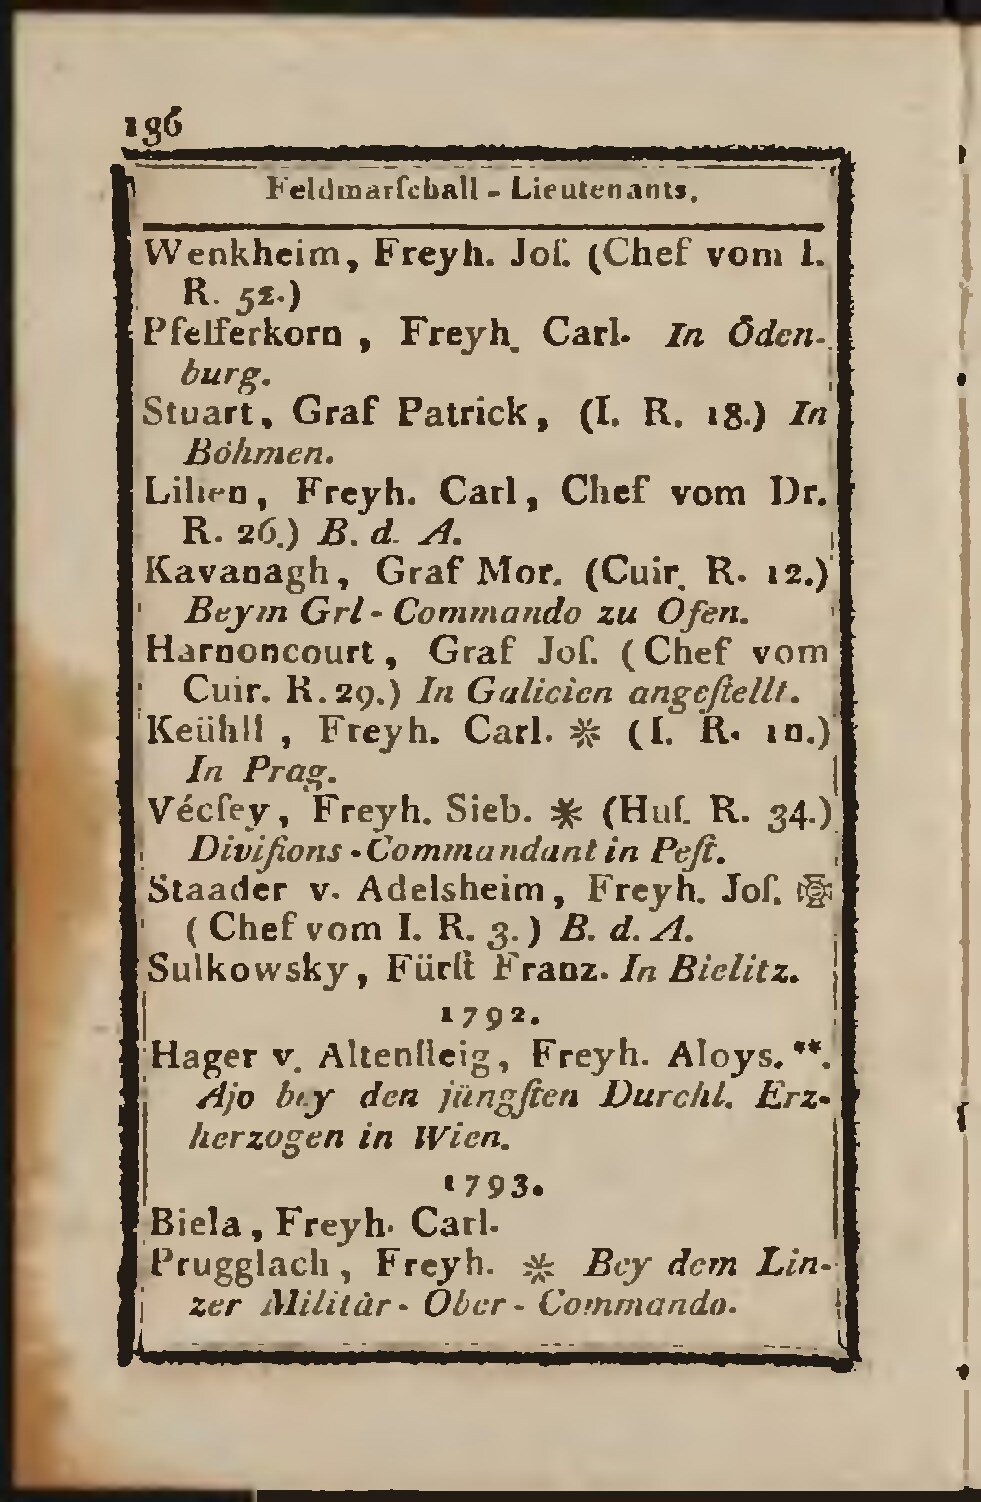 196
Feldmarſchall - Lieutenants.
Wenkheim, Freyh. Joſ. (Chef vom I.
R. 52.)
Pfefferkorn, Freyh. Carl. In Öden-
burg.
Stuart, Graf Patrick, (I. R. 18.) In
Böhmen.
Lilien, Freyh. Carl, Chef vom Dr.
R. 26.) B. d. A.
Kavanagh, Graf Mor. (Cuir. R. 12.)
Beym Grl-Commando zu Ofen.
Harnoncourt, Graf Joſ. (Chef vom
Cuir. R. 29.) In Galicien angeſtellt.
Keühll, Freyh. Carl. ※ (I. R. 10.)
In Prag.
Vécſey, Freyh. Sieb. ※ (Huſ. R. 34.)
Diviſions-Commandant in Peſt.
Staader v. Adelsheim, Freyh. Joſ.
(Chef vom I. R. 3.) B. d. A.
Sulkowsky, Fürſt Franz. In Bielitz.
1792.
Hager v. Altenſteig, Freyh. Aloys. **.
Ajo bey den jüngſten Durchl. Erz-
herzogen in Wien.
1793.
Biela, Freyh. Carl.
Prugglach, Freyh. ※ Bey dem Lin-
zer Militär-Ober-Commando.